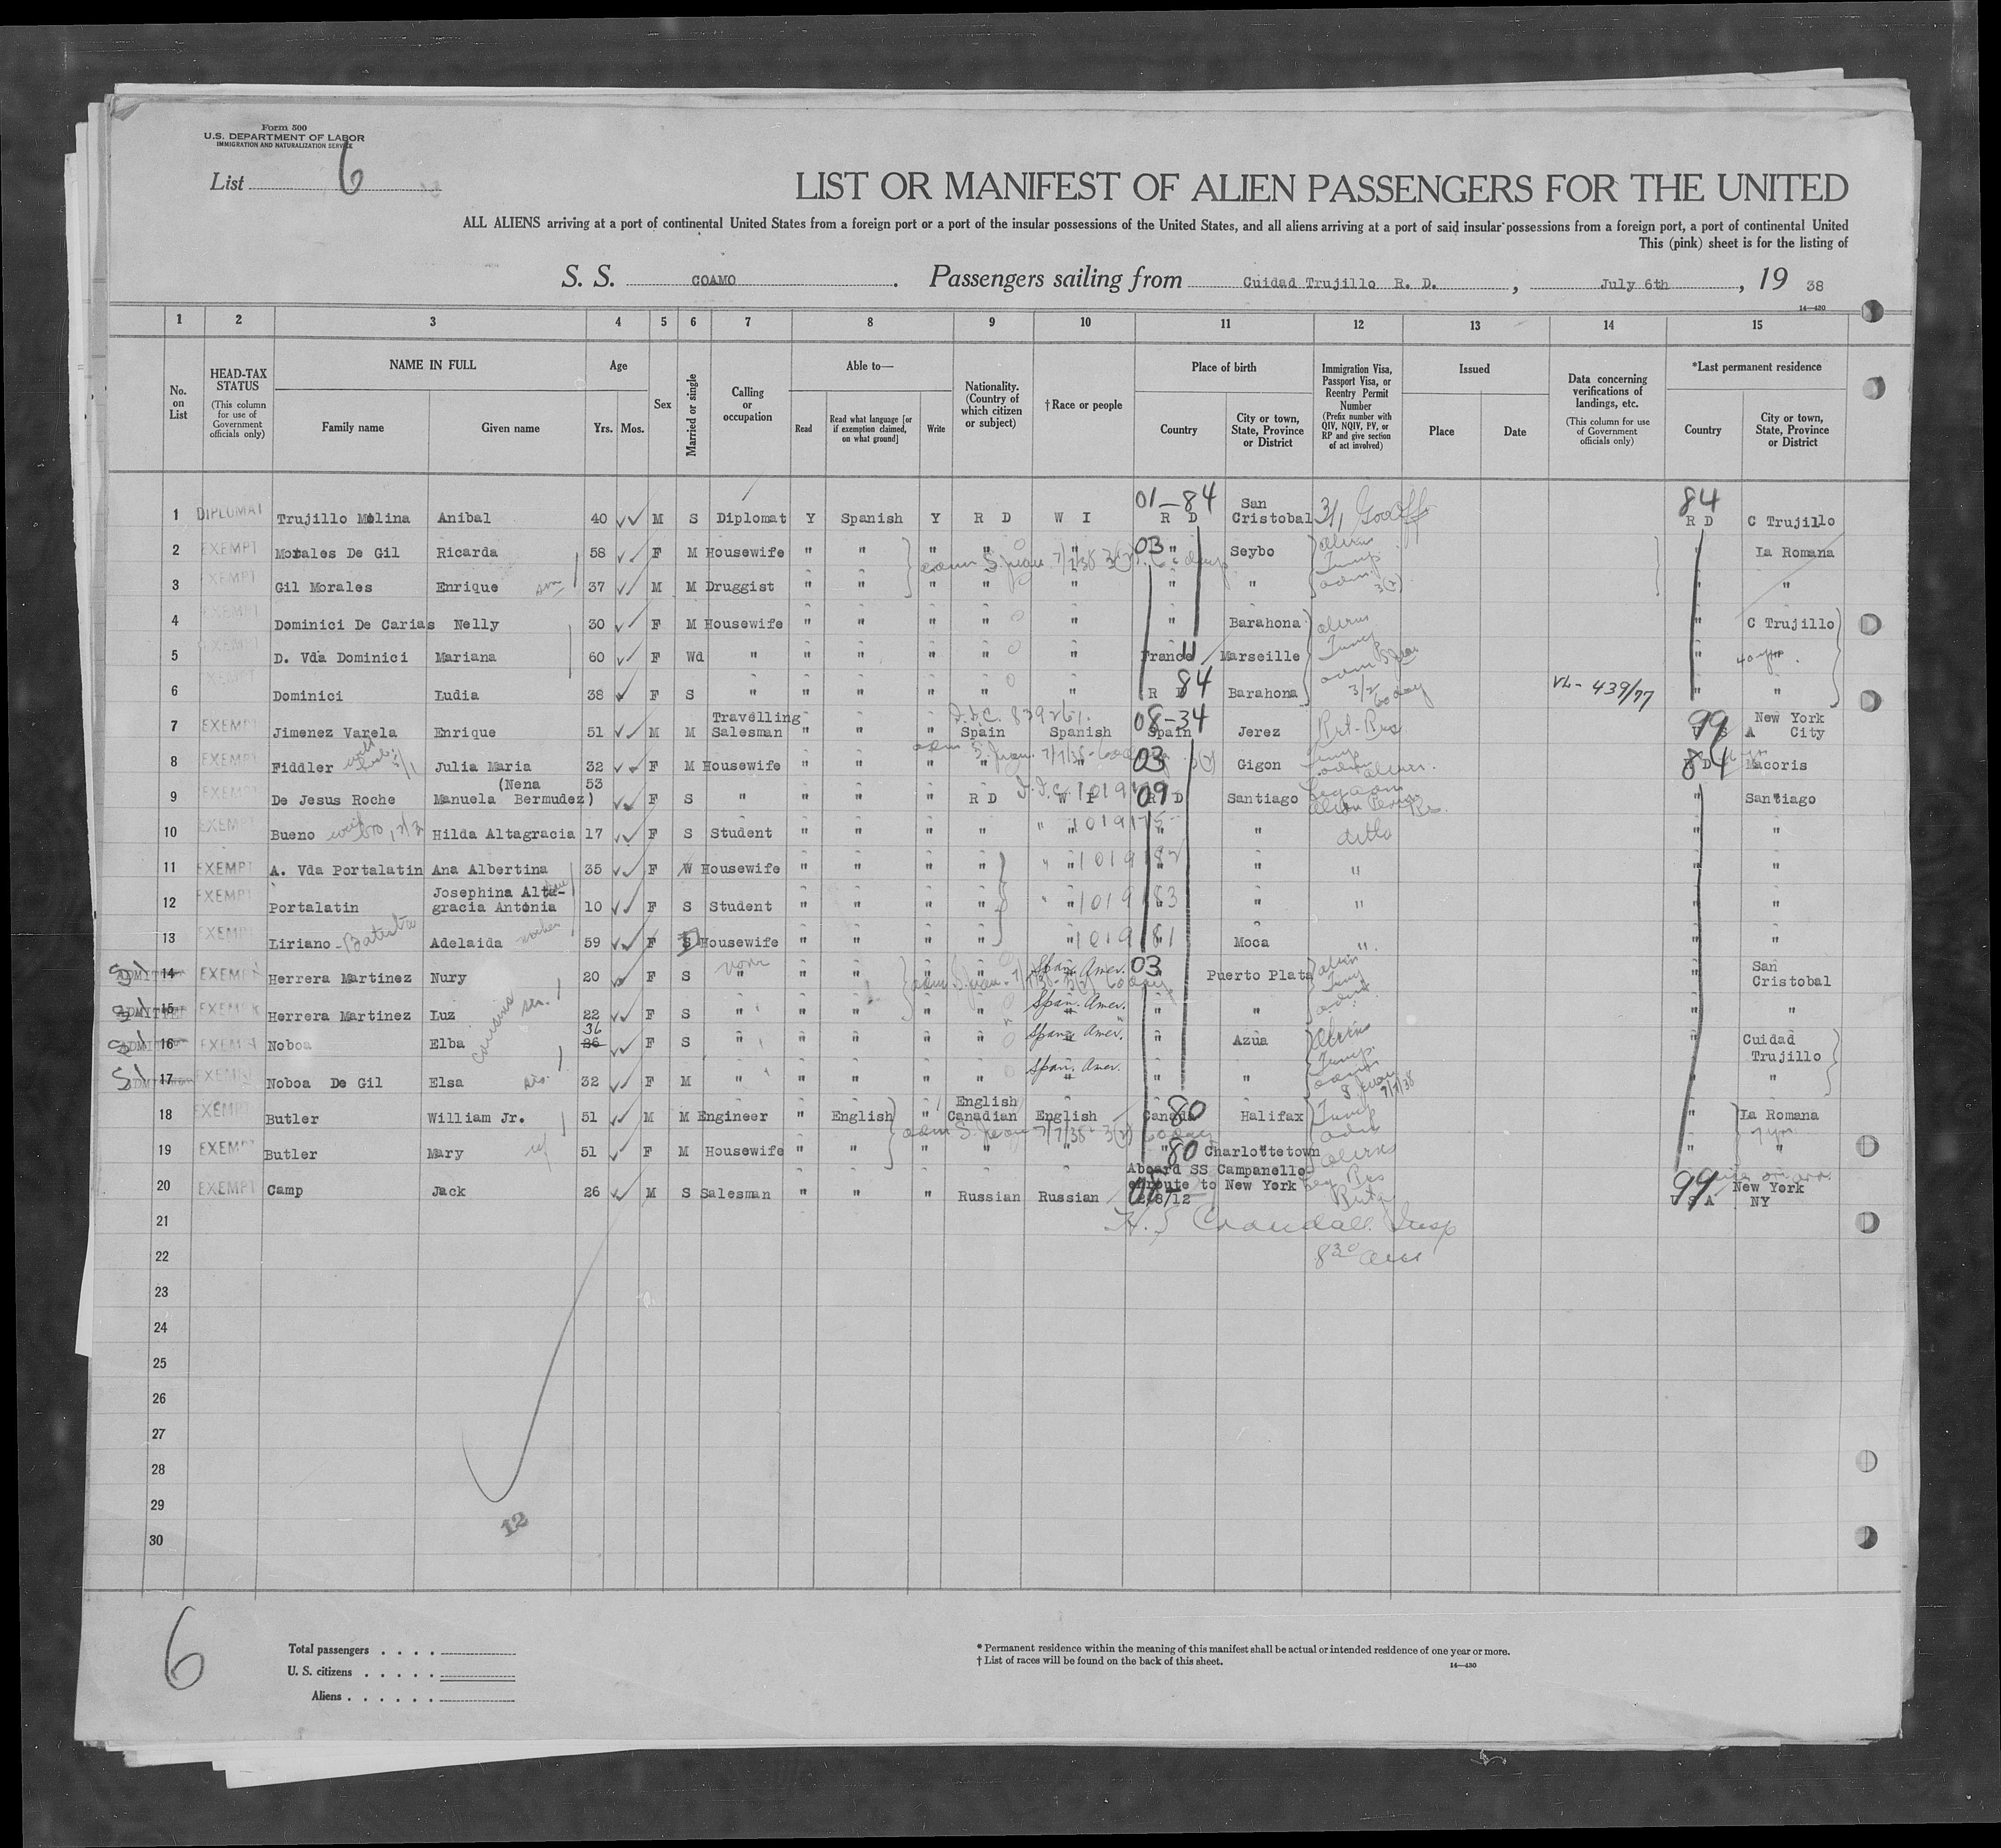 Form 500
U.S. DEPARTMENT OF LABOR
IMMIGRATION AND NATURALIZATION SERVICE
List 6
LIST OR MANIFEST OF ALIEN PASSENGERS FOR THE UNITED
ALL ALIENS arriving at a port of continental United States from a foreign port or a port of the insular possessions of the United States, and all aliens arriving at a port of said insular possessions from a foreign port, a port of continental United
This (pink) sheet is for the listing of
S. S. COAMO . Passengers sailing from Cuidad Trujillo R. D. , July 6th , 19 38
14—430
1 2 3 4 5 6 7 8 9 10 11 12 13 14 15
No. on List
HEAD-TAX STATUS (This column for use of Government officials only)
NAME IN FULL
Family name Given name
Age
Yrs. Mos.
Sex
Married or single
Calling or occupation
Able to—
Read
Read what language [or if exemption claimed, on what ground]
Write
Nationality. (Country of which citizen or subject)
† Race or people
Place of birth
Country
City or town, State, Province or District
Immigration Visa, Passport Visa, or Reentry Permit Number (Prefix number with QIV, NQIV, PV, or RP and give section of act involved)
Issued
Place Date
Data concerning verifications of landings, etc. (This column for use of Government officials only)
*Last permanent residence
Country
City or town, State, Province or District
1 DIPLOMAT Trujillo Molina Anibal 40 M S Diplomat Y Spanish Y R D W I 01-84 R D San Cristobal 3/1 84 R D C Trujillo
2 EXEMPT Morales De Gil Ricarda 58 F M Housewife " " " " " 03 " Seybo " La Romana
3 EXEMPT Gil Morales Enrique son 37 M M Druggist " " " " " " " 3(2) " "
4 EXEMPT Dominici De Carias Nelly 30 F M Housewife " " " " " " Barahona " C Trujillo
5 EXEMPT D. Vda Dominici Mariana 60 F Wd " " " " " " France Marseille " "
6 EXEMPT Dominici Ludia 38 F S " " " " " " R D 84 Barahona 3/2 60 day VL- 439/77 " "
7 EXEMPT Jimenez Varela Enrique 51 M M Travelling Salesman " " " Spain Spanish 08-34 Spain Jerez 99 U S A New York City
8 EXEMPT Fiddler Julia Maria 32 F M Housewife " " " " " 03 Gigon 84 R D Macoris
9 EXEMPT De Jesus Roche Manuela (Nena Bermudez) 53 F S " " " " R D W I 09 R D Santiago " Santiago
10 EXEMPT Bueno Hilda Altagracia 17 F S Student " " " " " 1019175 " " ditto " "
11 EXEMPT A. Vda Portalatin Ana Albertina 35 F W Housewife " " " " " 1019182 " " " " "
12 EXEMPT Portalatin Josephina Alta-gracia Antonia 10 F S Student " " " " " 1019183 " " " " "
13 EXEMPT Liriano-Batista Adelaida 59 F S Housewife " " " " " 1019181 " Moca " " "
14 ADMITTED EXEMPT Herrera Martinez Nury 20 F S none " " " " " Span. Amer. 03 " Puerto Plata " San Cristobal
15 ADMITTED EXEMPT Herrera Martinez Luz 22 F S " " " " " Span. Amer. " " " "
16 ADMITTED EXEMPT Noboa Elba 36 26 F S " " " " " Span. Amer. " Azua " Cuidad Trujillo
17 EXEMPT Noboa De Gil Elsa sis. 32 F M " " " " " Span. Amer. " " 7/7/38 " "
cousins
18 EXEMPT Butler William Jr. 51 M M Engineer " English " English Canadian English Canada 80 Halifax " La Romana
19 EXEMPT Butler Mary 51 F M Housewife " " " " " " 80 Charlottetown " "
20 EXEMPT Camp Jack 26 M S Salesman " " " Russian Russian Aboard SS Campanello enroute to New York 2/8/12 99 U S A New York NY
21 H. S Crandall Insp
22 8 30 am
23
24
25
26
27
28
29
30
12
6
Total passengers . . . .
U. S. citizens . . . . .
Aliens . . . . . .
* Permanent residence within the meaning of this manifest shall be actual or intended residence of one year or more.
† List of races will be found on the back of this sheet. 14—430